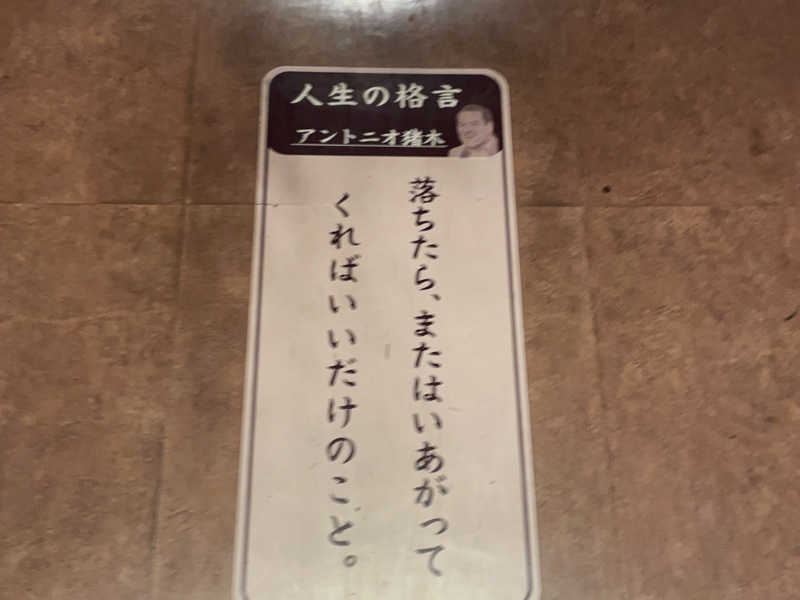 人生の格言
アントニオ猪木
落ちたら、またはいあがって
くればいいだけのこと。